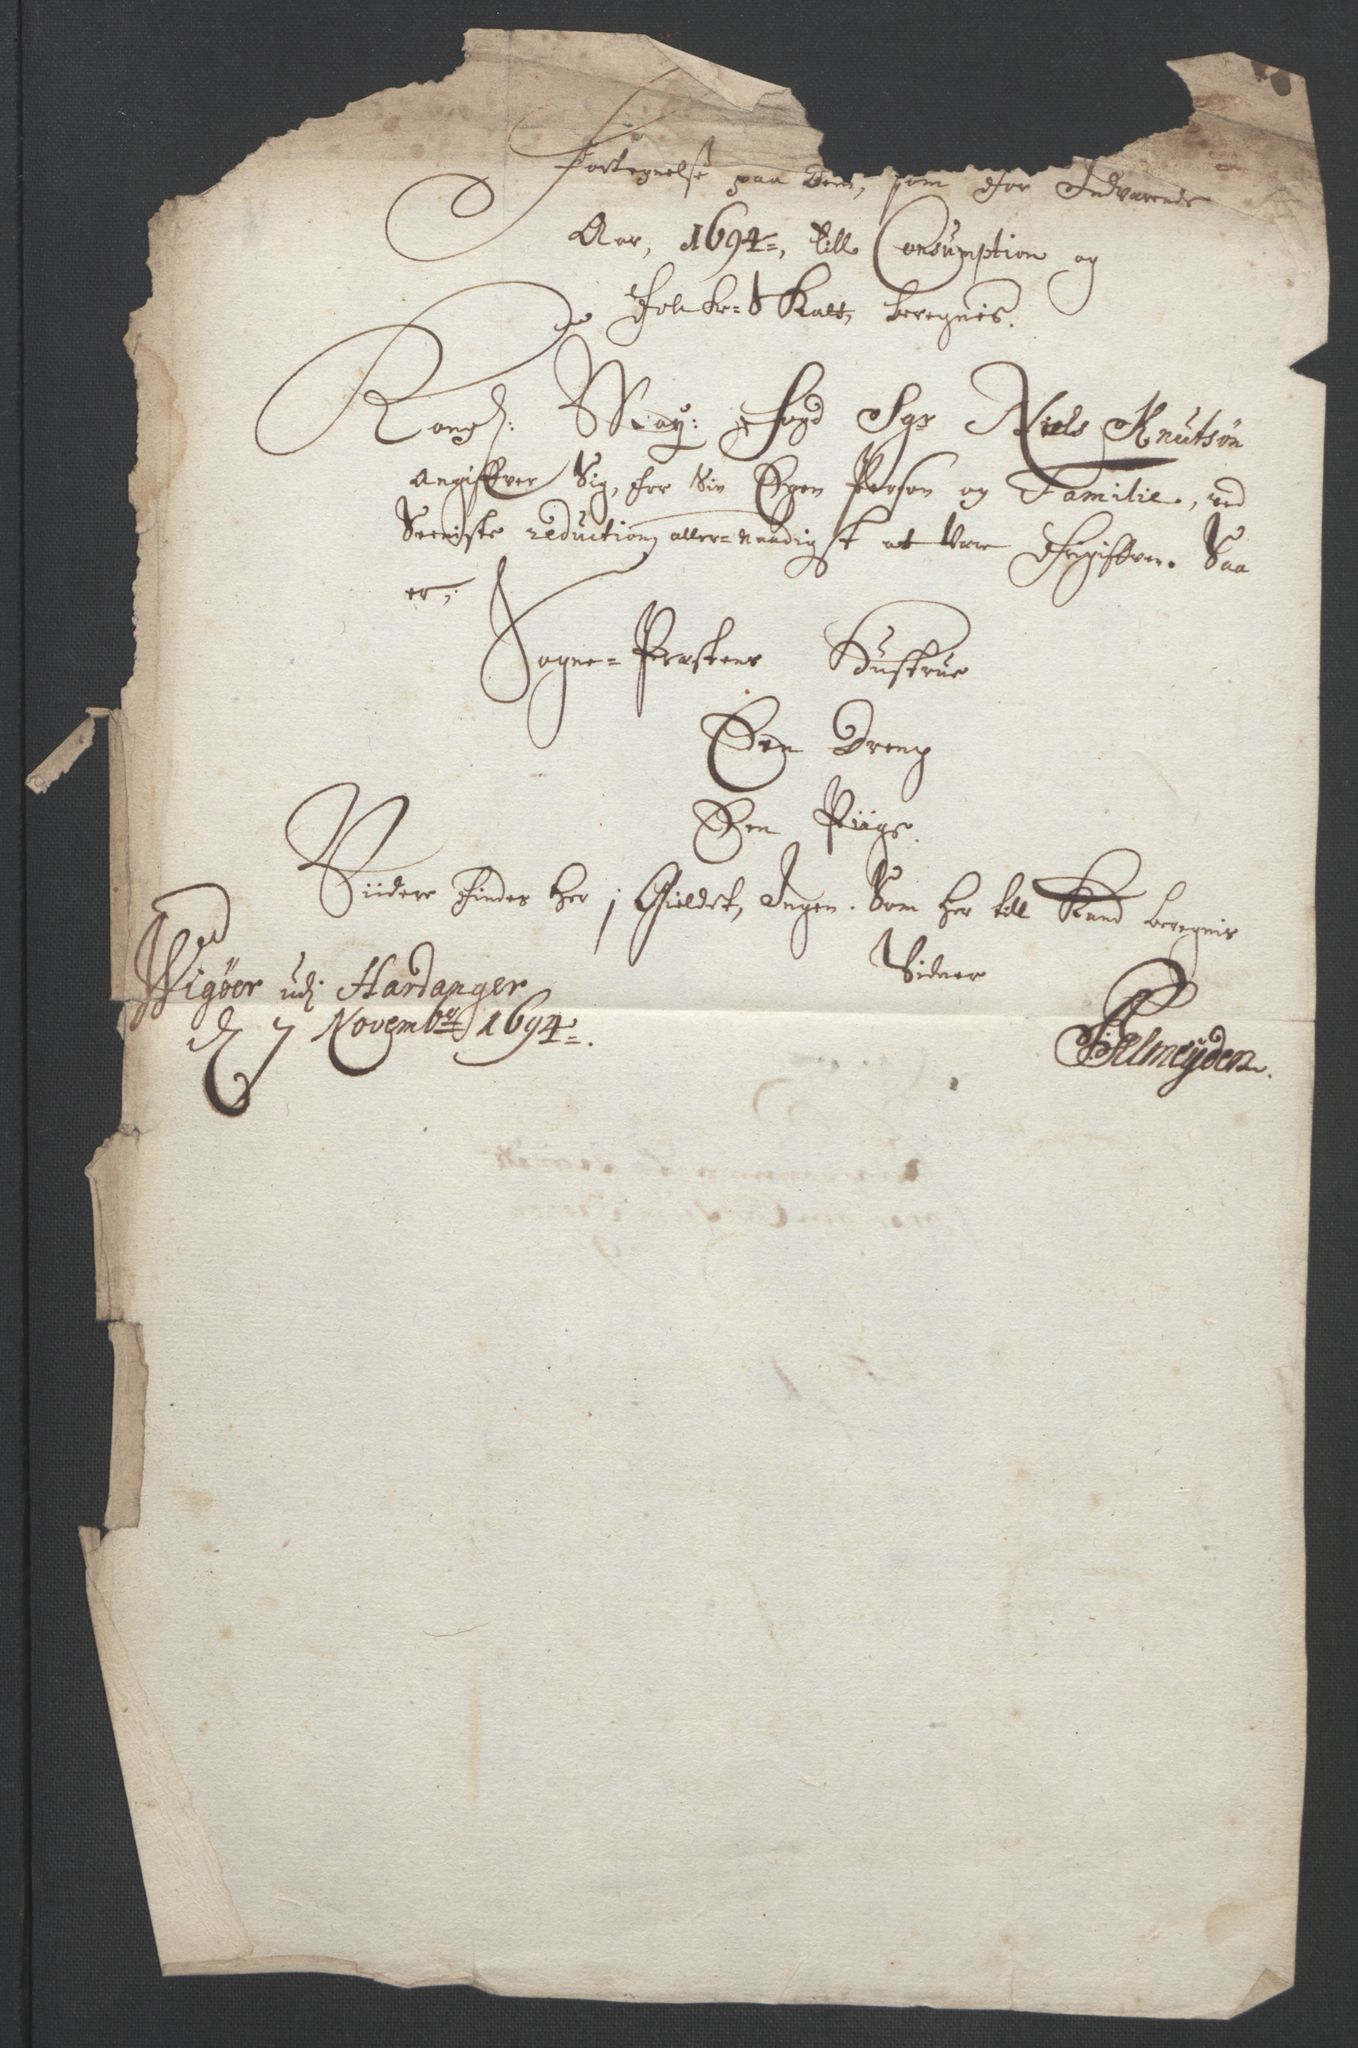 Fortegnelse paa dem, som for Indværende
Aar, 1694=, till Consumption og
Folke=Skatt, beregnis.
Kongl: May: Fogd Sgr Niels Knutsøn
angiffver Sig, for Sin Egen Person og Familie, ved
Seeniste reduction aller=naadigst at være frigiffven. Saa
er,
Sogne=Præstens Hustrue
Een Dreng
Een Piige.
Viidere findes her j Gieldet, Ingen. Som her till Kand beregnis
Vidner
Wigøer udj Hardanger
d 7 Novembr 1694=.
Selmeyden.